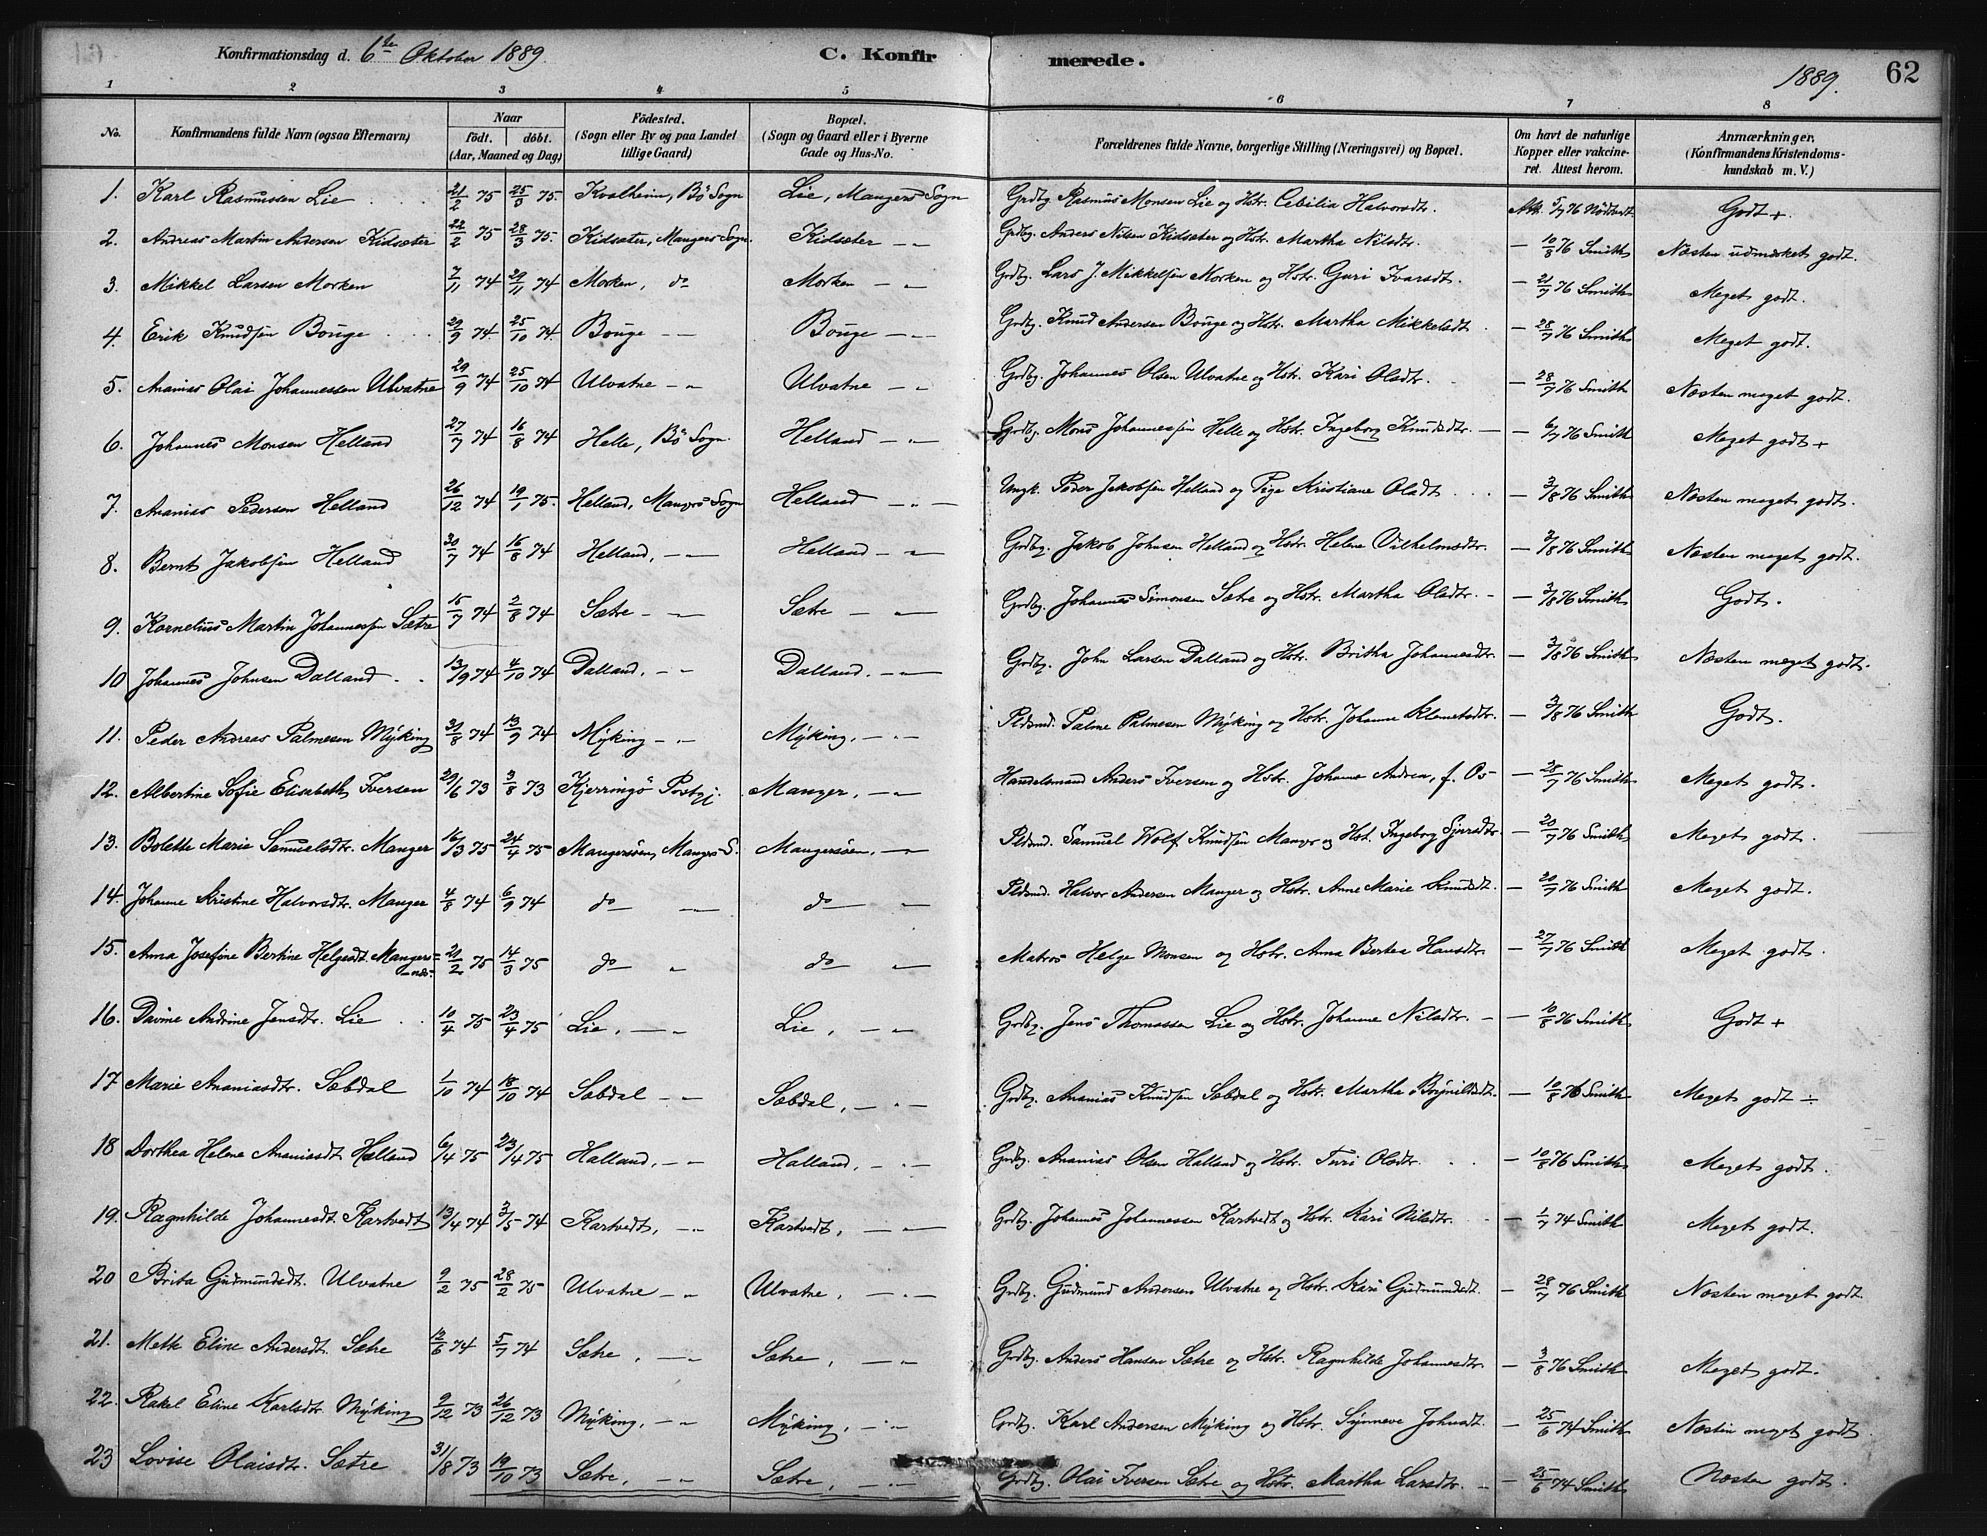 Konfirmationsdag d. 6te Oktober 1889.
C. Konfirmerede.
1889.
62
1 2 3 4 5 6 7 8
No.
Konfirmandens fulde Navn (ogsaa Efternavn)
Naar
født. døbt.
(Aar, Maaned og Dag)
Fødested.
(Sogn eller By og paa Landet
tillige Gaard)
Bopæl.
(Sogn og Gaard eller i Byerne
Gade og Hus-No.
Forældrenes fulde Navne, borgerlige Stilling (Næringsvei) og Bopæl.
Om havt de naturlige
Kopper eller vakcine-
ret. Attest herom.
Anmærkninger,
(Konfirmandens Kristendoms-
kundskab m. V.)
1. Karl Rasmussen Lie 21/2 75 25/3 75. Kvalheim, Bö Sogn Lie, Mangers Sogn Grdbg. Rasmus Monsen Lie og Hstr. Cecilia Halvorsdtr. Att. 5/7 76 Nödtvedt Godt +.
2. Andreas Martin Andersen Kidsæter 22/2 75 28/3 75. Kidsæter, Mangers Sogn. Kidsæter — „ Grdbg. Anders Nilsen Kidsæter og Hstr. Martha Nilsdtr. — 10/8 76 Smith Næsten udmærket godt.
3. Mikkel Larsen Morken 7/11 74 29/11 74 Morken, do Morken — „ Grdbg. Lars J. Mikkelsen Morken og Hstr. Guri Ivarsdt. — 21/7 76 Smith Meget godt.
4. Erik Knudsen Bouge 29/9 74. 25/10 74. Bouge — Bouge — „ Grdbg. Knud Andersen Bouge og Hstr. Martha Mikkelsdt — 28/7 76 Smith Meget godt.
5. Ananias Olai Johannessen Ulvatne 29/9 74 25/10 74 Ulvatne — „ Ulvatne — „ Grdbg. Johannes Olsen Ulvatne og Hstr. Kari Olsdtr. — 28/7 76 Smith Næsten meget godt.
6. Johannes Monsen Helland 27/7 74 16/8 74 Helle, Bö Sogn. Helland — „ Grdbg. Mons Johannessen Helle og Hstr. Ingeborg Knudsdtr. — 6/7 76 Smith Meget godt +
7. Ananias Pedersen Helland 26/12 74 19/1 75. Helland, Mangers Sogn Helland — „ — Ungk. Peder Jakobsen Helland og Pige Kristiane Olsdt — 3/8 76 Smith Næsten meget godt.
8. Bernt Jakobsen Helland 30/7 74 16/8 74 Helland, — Helland — „ Grdbg. Jakob Johnsen Helland og Hstr. Helene Vilhelmsdtr. — 3/8 76 Smith Næsten meget godt.
9. Kornelius Martin Johannessen Sætre 15/7 74 2/8 74 Sætre — „ Sætre — „ Grdbg. Johannes Simonsen Sætre og Hstr. Martha Olsdtr. — 3/8 76 Smith Godt.
10 Johannes Johnsen Dalland 13/9 74 4/10 74 Dalland, — „ Dalland. — „ Grdbg. John Larsen Dalland og Hstr. Britha Johannesdtr — 3/8 76 Smith Næsten meget godt.
11. Peder Andreas Palmesen Mÿking 31/8 74 13/9 74 Mÿking — „ Mÿking, — „ Pldsmd. Palme Palmesen Mÿking og Hstr. Johanne Klemetsdtr. — 3/8 76 Smith Godt.
12. Albertine Sofie Elisabeth Iversen 29/6 73 3/8 73 Kjerringö Prstgj. Manger, — „ Handelsmand Anders Iversen og Hstr. Johanne Andrea, f. Os — 28/7 76 Smith Meget godt.
13. Bolette Marie Samuelsdtr. Manger 16/3 75 24/4 75 Mangersöen, Mangers S. Mangersöen, — Pldsmd. Samuel Wolf Knudsen Manger og Hst. Ingeborg Sjursdtr — 20/7 76 Smith Meget godt.
14. Johanne Kristine Halvorsdtr. Manger 4/8 74 6/9 74 do — do „ Pldsmd. Halvor Andersen Manger og Hstr. Anne Marie Knudsdt. — 20/7 76 Smith Meget godt.
15. Anna Josefine Bertine Helgesdt. Mangers= 21/2 75 14/3 75 do „ do „ Matros Helge Monsen og Hstr. Anna Bertea Hansdtr — 27/7 76 Smith Meget godt.
16. Davine Andrine Jensdtr. Lie 10/4 75 23/4 75 Lie, — „ Lie, — „ Grdbg. Jens Thomassen Lie og Hstr. Johanne Nilsdtr. — 10/8 76 Smith Godt +
17 Marie Ananiasdtr. Sæbdal 1/10 74 18/10 74 Sæbdal — „ Sæbdal, — „ — Grdbg. Ananias Knudsen Sæbdal og Hstr. Martha Brynildsdt. — 10/8 76 Smith Meget godt ÷
18 Dorthea Helene Ananiasdt Halland 6/4 75 23/4 75 Halland, — „ Halland, — „ — Grdbg. Ananias Olsen Halland og Hstr. Turi Olsdtr. — 10/8 76 Smith Meget godt.
19. Ragnhilde Johannesdt. Kartvedt 13/4 74 3/5 74 Kartvedt, — „ Kartvedt, — Grdbg. Johannes Johannessen Kartvedt og Hstr. Kari Nilsdtr. — 1/7 74 Smith Meget godt.
20 Brita Gudmundsdt. Ulvatne 9/2 75 28/2 75 Ulvatne — „ Ulvatne, — „ — Grdbg. Gudmund Andersen Ulvatne og Hstr. Kari Gudmundsdt. — 28/7 76 Smith Næsten meget godt.
21. Mette Eline Andersdt. Sætre 12/6 74 5/7 74 Sætre, — „ Sætre, — „ Grdbg. Anders Hansen Sætre og Hstr. Ragnhilde Johannesdtr. — 3/8 76 Smith Meget godt.
22. Rakel Eline Karlsdtr. Mÿking 9/12 73 26/12 73 Mÿking, — „ Mÿking, — „ Grdbg. Karl Andersen Mÿking og Hstr. Synneve Johnsdt. — 25/6 74 Smith Næsten meget godt
23 Lovise Olaisdtr. Sætre 31/8 73 19/10 73 Sætre, — „ Sætre, — „ — Grdbg. Olai Iversen Sætre og Hstr. Martha Larsdtr. — 25/6 74 Smith Næsten godt.